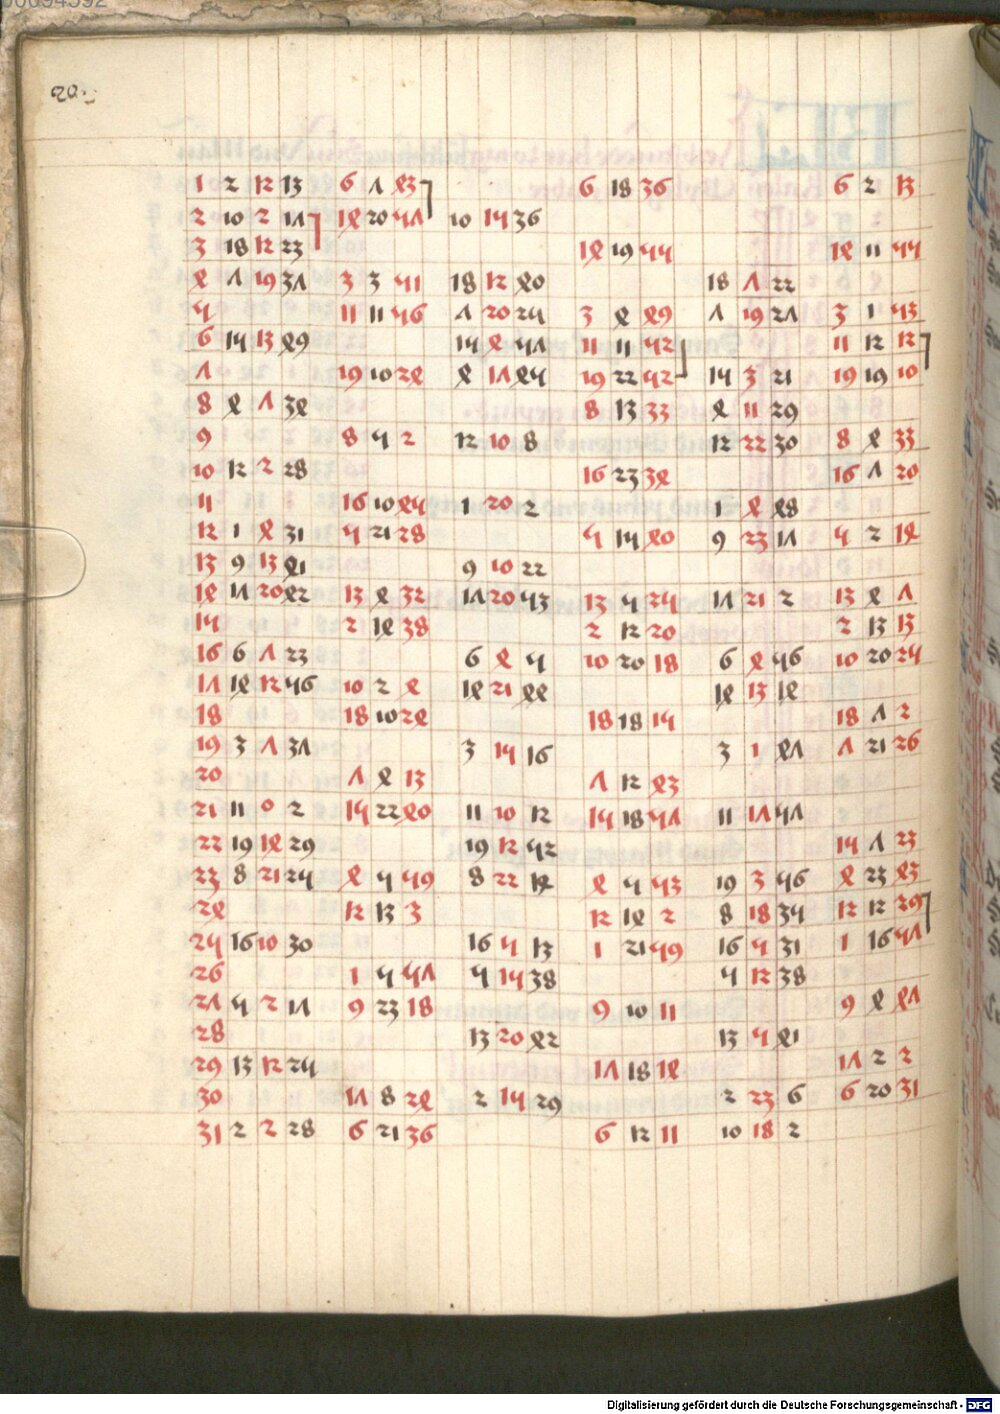 1 2 12 13 6 7 43 6 18 36 6 2 13
2 10 2 17 14 20 57 10 15 36
3 18 12 23 14 19 55 14 11 55
4 7 19 37 3 3 51 18 12 40 18 7 22
5 11 11 56 7 20 25 3 4 49 7 19 27 3 1 53
6 15 13 49 15 4 57 11 11 52 11 12 12
7 19 10 24 4 17 45 19 22 52 15 3 21 19 19 10
8 4 7 34 8 13 33 4 11 29
9 8 5 2 12 10 8 12 22 30 8 4 33
10 12 2 28 16 23 34 16 7 20
11 16 10 45 1 20 2 1 4 48
12 1 4 31 5 21 28 5 15 40 9 23 17 5 2 14
13 9 13 41 9 10 22
14 17 20 42 13 4 32 17 20 53 13 5 25 17 21 2 13 4 7
15 2 14 38 2 12 20 2 13 13
16 6 7 23 6 4 5 10 20 18 6 4 56 10 20 25
17 14 12 56 10 2 4 14 21 44 14 13 14
18 18 10 24 18 18 15 18 7 2
19 3 7 37 3 15 16 3 1 47 7 21 26
20 7 4 13 7 12 43
21 11 0 2 15 22 40 11 10 12 15 18 57 11 17 57
22 19 14 29 19 12 52 15 7 23
23 8 21 25 4 5 59 8 22 4 5 53 19 3 56 4 23 43
24 12 13 3 12 14 2 8 18 35 12 12 29
25 16 10 30 16 5 13 1 21 59 16 5 31 1 16 57
26 1 5 57 5 15 38 5 12 38
27 5 2 17 9 23 18 9 10 11 9 4 47
28 13 20 42 13 5 41
29 13 12 25 17 18 14 17 2 2
30 17 8 24 2 15 29 2 23 6 6 20 31
31 2 2 28 6 21 36 6 12 11 10 18 2
Digitalisierung gefördert durch die Deutsche Forschungsgemeinschaft - DFG